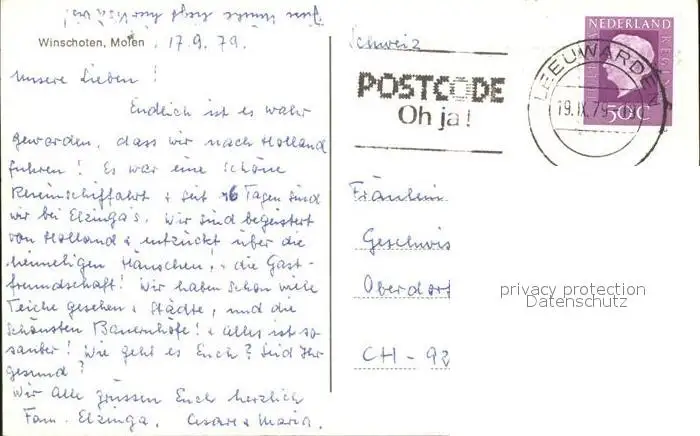 Winschoten, Molen, 17.9.79.
Unsere Lieben!
Endlich ist es wahr
geworden, dass wir nach Holland
fuhren! Es war eine schöne
& seit 6 Tagen sind
wir bei Elzinga's. Wir sind begeistert
von Holland & entzückt über die
heimeligen Häuschen! & die Gast-
freundschaft! Wir haben schon viele
Teiche gesehen & Städte, und die
schönsten Bauernhöfe! & alles ist so
sauber! Wie geht es Euch? Seid Ihr
gesund?
Wir alle grüssen Euch herzlich
Fam. Elzinga, Cesare & Maria.
Schweiz
POSTCODE
Oh ja!
NEDERLAND
LEEUWARDEN
19.IX.79
50c
Fräulein
Geschwis
Oberdorf
CH - 92
privacy protection
Datenschutz